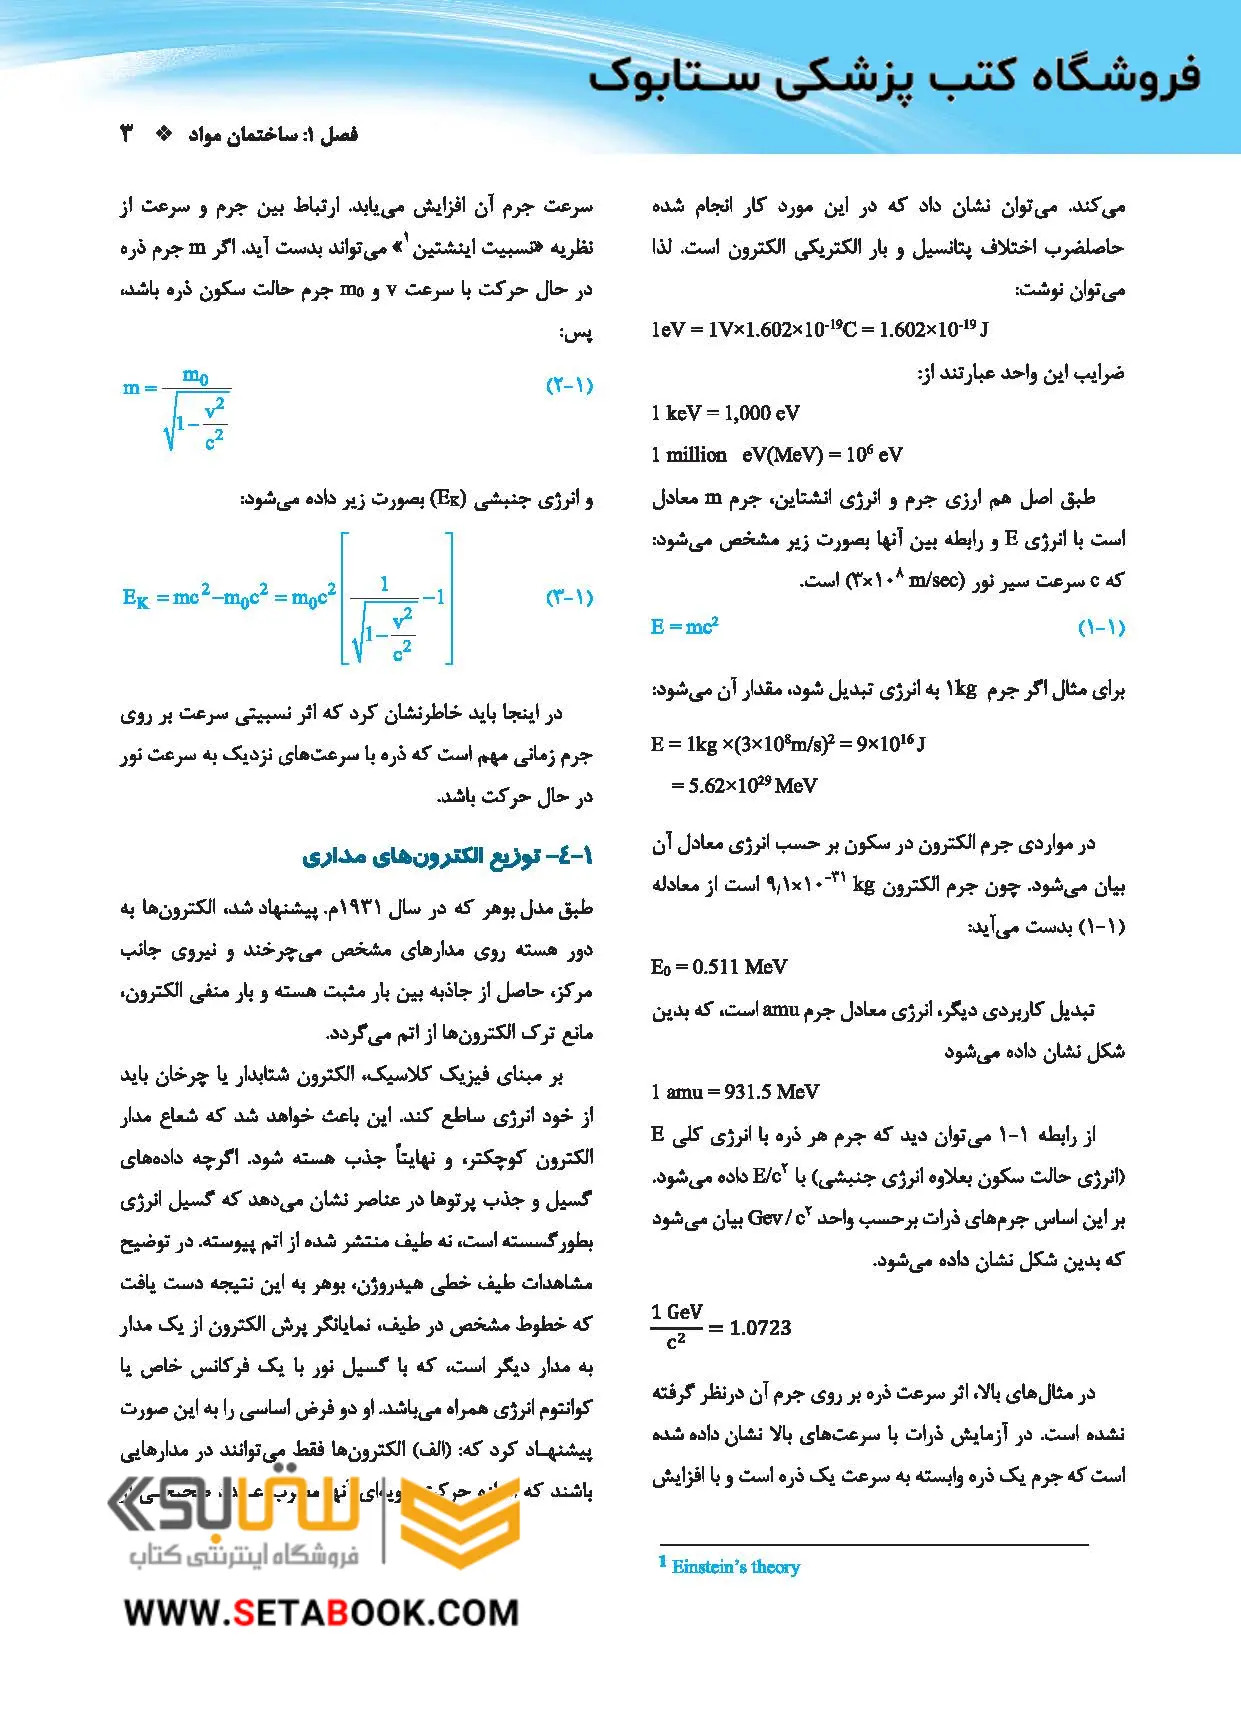 فروشگاه کتب پزشکی ستابوک
فصل ۱: ساختمان مواد ❖ ۳
می‌کند. می‌توان نشان داد که در این مورد کار انجام شده
حاصلضرب اختلاف پتانسیل و بار الکتریکی الکترون است. لذا
می‌توان نوشت:
1eV = 1V×1.602×10⁻¹⁹C = 1.602×10⁻¹⁹ J
ضرایب این واحد عبارتند از:
1 keV = 1,000 eV
1 million eV(MeV) = 10⁶ eV
طبق اصل هم ارزی جرم و انرژی انشتاین، جرم m معادل
است با انرژی E و رابطه بین آنها بصورت زیر مشخص می‌شود:
که c سرعت سیر نور (۳×۱۰⁸ m/sec) است.
E = mc² (۱-۱)
برای مثال اگر جرم ۱kg به انرژی تبدیل شود، مقدار آن می‌شود:
E = 1kg ×(3×10⁸m/s)² = 9×10¹⁶ J
= 5.62×10²⁹ MeV
در مواردی جرم الکترون در سکون بر حسب انرژی معادل آن
بیان می‌شود. چون جرم الکترون ۹٫۱×۱۰⁻³¹ kg است از معادله
(۱-۱) بدست می‌آید:
E₀ = 0.511 MeV
تبدیل کاربردی دیگر، انرژی معادل جرم amu است، که بدین
شکل نشان داده می‌شود
1 amu = 931.5 MeV
از رابطه ۱-۱ می‌توان دید که جرم هر ذره با انرژی کلی E
(انرژی حالت سکون بعلاوه انرژی جنبشی) با E/c² داده می‌شود.
بر این اساس جرم‌های ذرات برحسب واحد Gev / c² بیان می‌شود
که بدین شکل نشان داده می‌شود.
1 GeV / c² = 1.0723
در مثال‌های بالا، اثر سرعت ذره بر روی جرم آن درنظر گرفته
نشده است. در آزمایش ذرات با سرعت‌های بالا نشان داده شده
است که جرم یک ذره وابسته به سرعت یک ذره است و با افزایش
¹ Einstein's theory
سرعت جرم آن افزایش می‌یابد. ارتباط بین جرم و سرعت از
نظریه «نسبیت اینشتین¹» می‌تواند بدست آید. اگر m جرم ذره
در حال حرکت با سرعت v و m₀ جرم حالت سکون ذره باشد،
پس:
m = m₀ / √(1 − v²/c²) (۲-۱)
و انرژی جنبشی (E_K) بصورت زیر داده می‌شود:
E_K = mc² − m₀c² = m₀c² [1 / √(1 − v²/c²) − 1] (۳-۱)
در اینجا باید خاطرنشان کرد که اثر نسبیتی سرعت بر روی
جرم زمانی مهم است که ذره با سرعت‌های نزدیک به سرعت نور
در حال حرکت باشد.
۱-۴- توزیع الکترون‌های مداری
طبق مدل بوهر که در سال ۱۹۳۱م. پیشنهاد شد، الکترون‌ها به
دور هسته روی مدارهای مشخص می‌چرخند و نیروی جانب
مرکز، حاصل از جاذبه بین بار مثبت هسته و بار منفی الکترون،
مانع ترک الکترون‌ها از اتم می‌گردد.
بر مبنای فیزیک کلاسیک، الکترون شتابدار یا چرخان باید
از خود انرژی ساطع کند. این باعث خواهد شد که شعاع مدار
الکترون کوچکتر، و نهایتاً جذب هسته شود. اگرچه داده‌های
گسیل و جذب پرتوها در عناصر نشان می‌دهد که گسیل انرژی
بطورگسسته است، نه طیف منتشر شده از اتم پیوسته. در توضیح
مشاهدات طیف خطی هیدروژن، بوهر به این نتیجه دست یافت
که خطوط مشخص در طیف، نمایانگر پرش الکترون از یک مدار
به مدار دیگر است، که با گسیل نور با یک فرکانس خاص یا
کوانتوم انرژی همراه می‌باشد. او دو فرض اساسی را به این صورت
پیشنهاد کرد که: (الف) الکترون‌ها فقط می‌توانند در مدارهایی
باشند که
ستابوک
فروشگاه اینترنتی کتاب
WWW.SETABOOK.COM